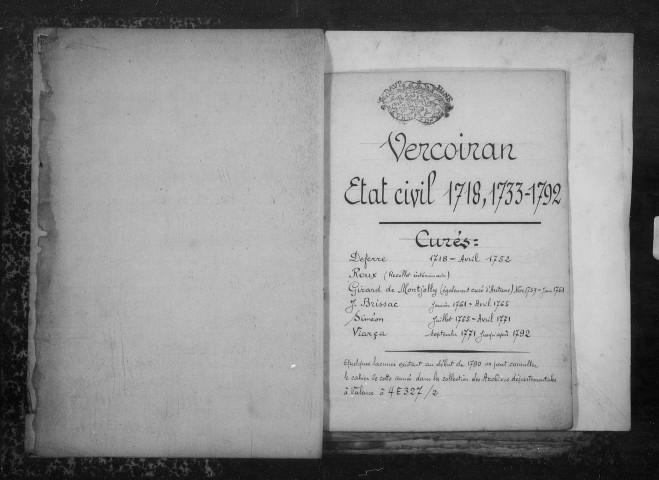 Vercoiran
Etat civil 1718, 1733-1792
Curés =
Deferre 1718 - Avril 1752
Roux (Recollet intérimaire)
Girard de Montjolly (également curé d'Autane) Nov. 1757 - Janv. 1761
J. Brissac Janvier 1761 - Avril 1765
Siméon Juillet 1765 - Avril 1771
Viarça Septembre 1771 jusqu'après 1792
Quelques lacunes existant au début de 1790 on peut consulter
le cahier de cette année dans la collection des Archives départementales
à Valence à 4E327/2